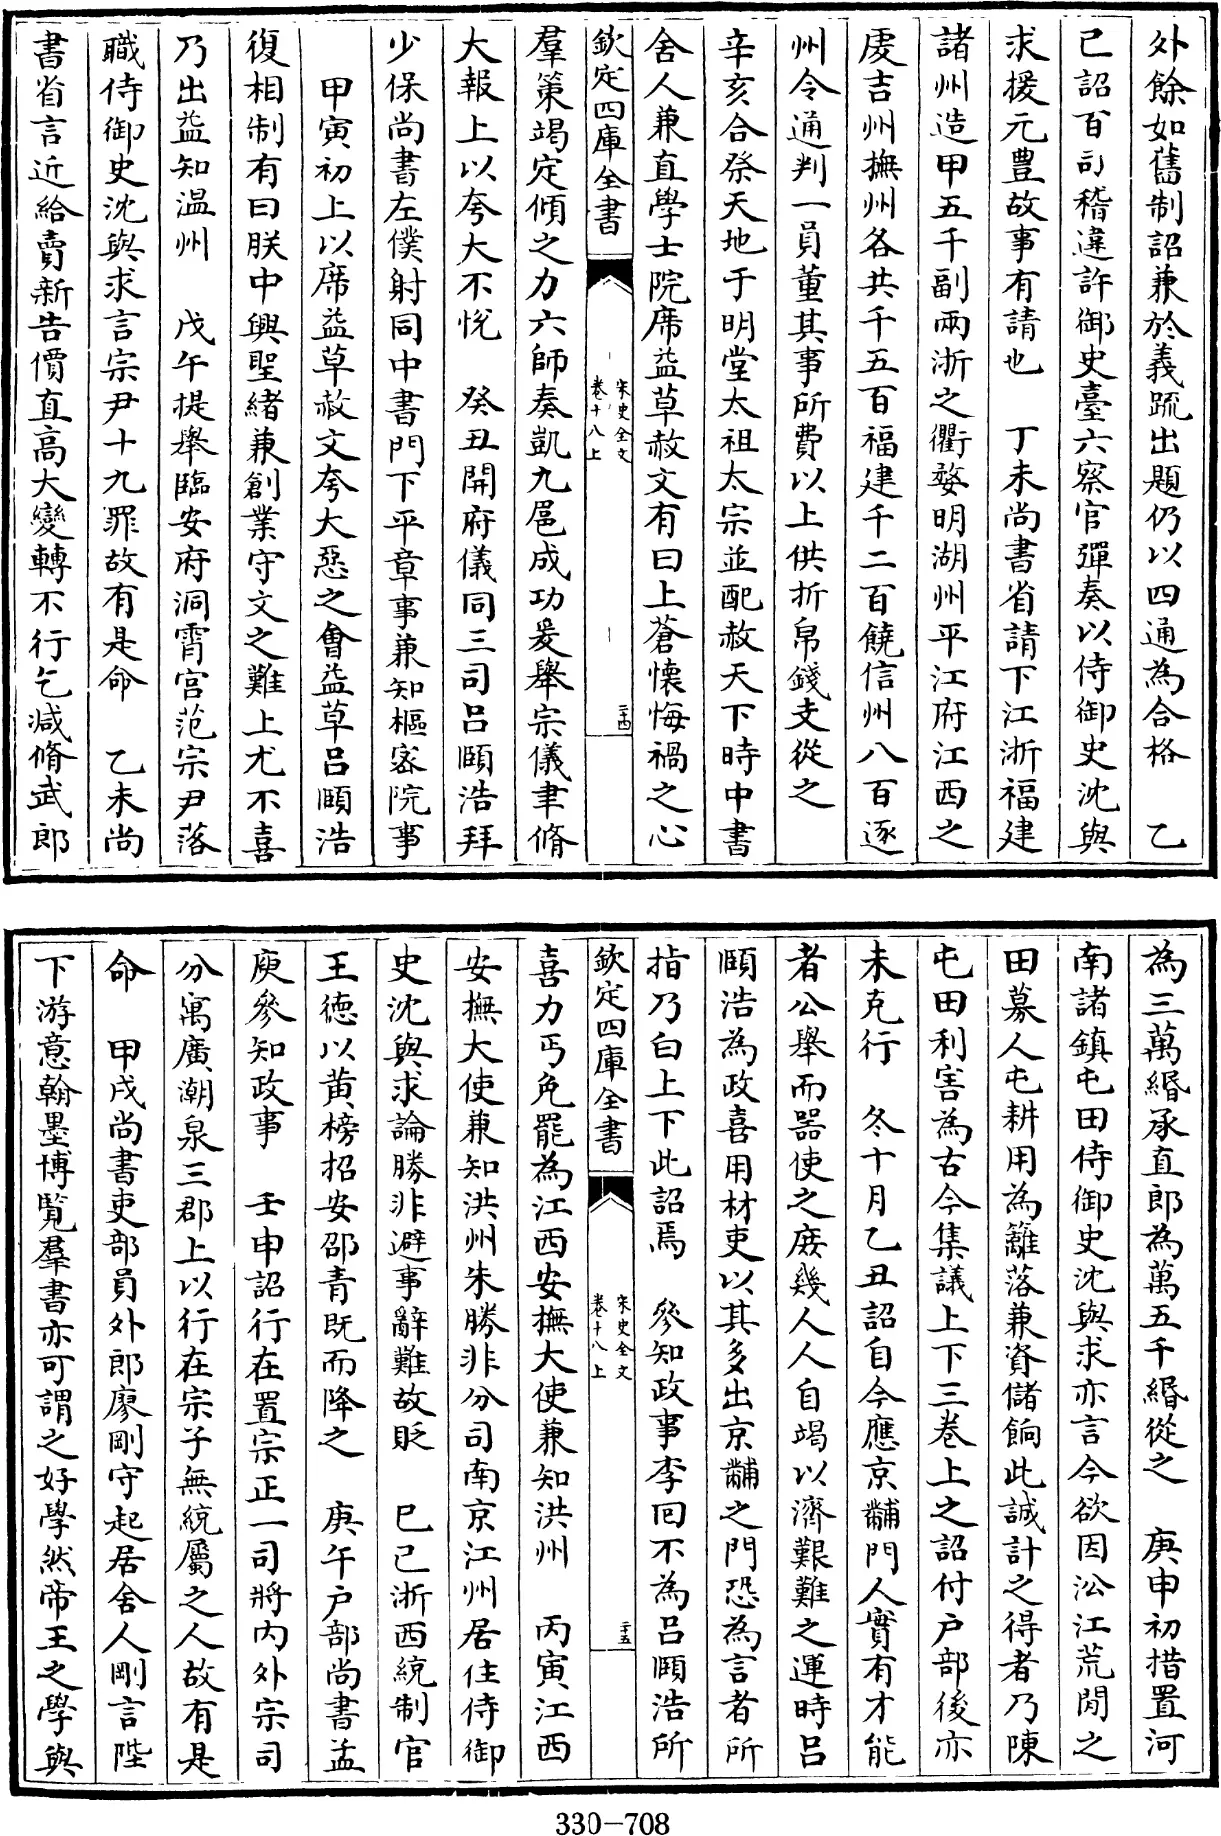 外餘如舊制詔兼於義疏出題仍以四通為合格　乙
已詔百司稽違許御史臺六察官彈奏以侍御史沈與
求援元豊故事有請也　丁未尚書省請下江浙福建
諸州造甲五千副兩浙之衢婺明湖州平江府江西之
䖍吉州撫州各共千五百福建千二百饒信州八百逐
州令通判一員董其事所費以上供折帛錢支從之
辛亥合祭天地于明堂太祖太宗並配赦天下時中書
舍人兼直學士院席益草赦文有曰上蒼懐悔禍之心
欽定四庫全書
宋史全文
卷十八上
二十四
羣策竭定傾之力六師奏凱九扈成功爰舉宗儀聿脩
大報上以夸大不悦　癸丑開府儀同三司吕頤浩拜
少保尚書左僕射同中書門下平章事兼知樞宻院事
甲寅初上以席益草赦文夸大惡之㑹益草吕頤浩
復相制有曰朕中興聖緒兼創業守文之難上尤不喜
乃出益知温州　戊午提舉臨安府洞霄宫范宗尹落
職侍御史沈與求言宗尹十九罪故有是命　乙未尚
書省言近給賣新告價直高大變轉不行乞減脩武郎
為三萬緡承直郎為萬五千緡從之　庚申初措置河
南諸鎮屯田侍御史沈與求亦言今欲因㳂江荒閒之
田募人屯耕用為籬落兼資儲餉此誠計之得者乃陳
屯田利害為古今集議上下三卷上之詔付户部後亦
未克行　冬十月乙丑詔自今應京黼門人實有才能
者公舉而器使之庻幾人人自竭以濟艱難之運時吕
頤浩為政喜用材吏以其多出京黼之門恐為言者所
指乃白上下此詔焉　參知政事李回不為吕頤浩所
欽定四庫全書
宋史全文
卷十八上
二十五
喜力丐免罷為江西安撫大使兼知洪州　丙寅江西
安撫大使兼知洪州朱勝非分司南京江州居住侍御
史沈與求論勝非避事辭難故貶　已已浙西統制官
王德以黄榜招安邵青既而降之　庚午户部尚書孟
庾參知政事　壬申詔行在置宗正一司將内外宗司
分寓廣潮泉三郡上以行在宗子無統屬之人故有是
命　甲戌尚書吏部員外郎廖剛守起居舍人剛言陛
下游意翰墨博覧羣書亦可謂之好學然帝王之學與
330-708